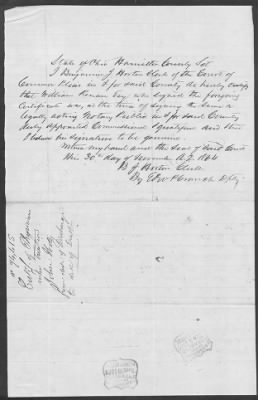 State of Ohio Hamilton County Sct
I Benjamin J Horton Clerk of the Court of
Common Pleas in & for said County do hereby certify
that William Renau Key who signed the foregoing
Certificate was, at the time of signing the same a
legally acting Notary Public in & for said County
duly appointed Commissioned & qualified and that
I believe his signature to be genuine
Witness my hand and the Seal of said Court
this 30th day of A.D. 1864
B J Horton Clerk
By Dpty
Certif of Physician
John
from date of Discharge
to date of